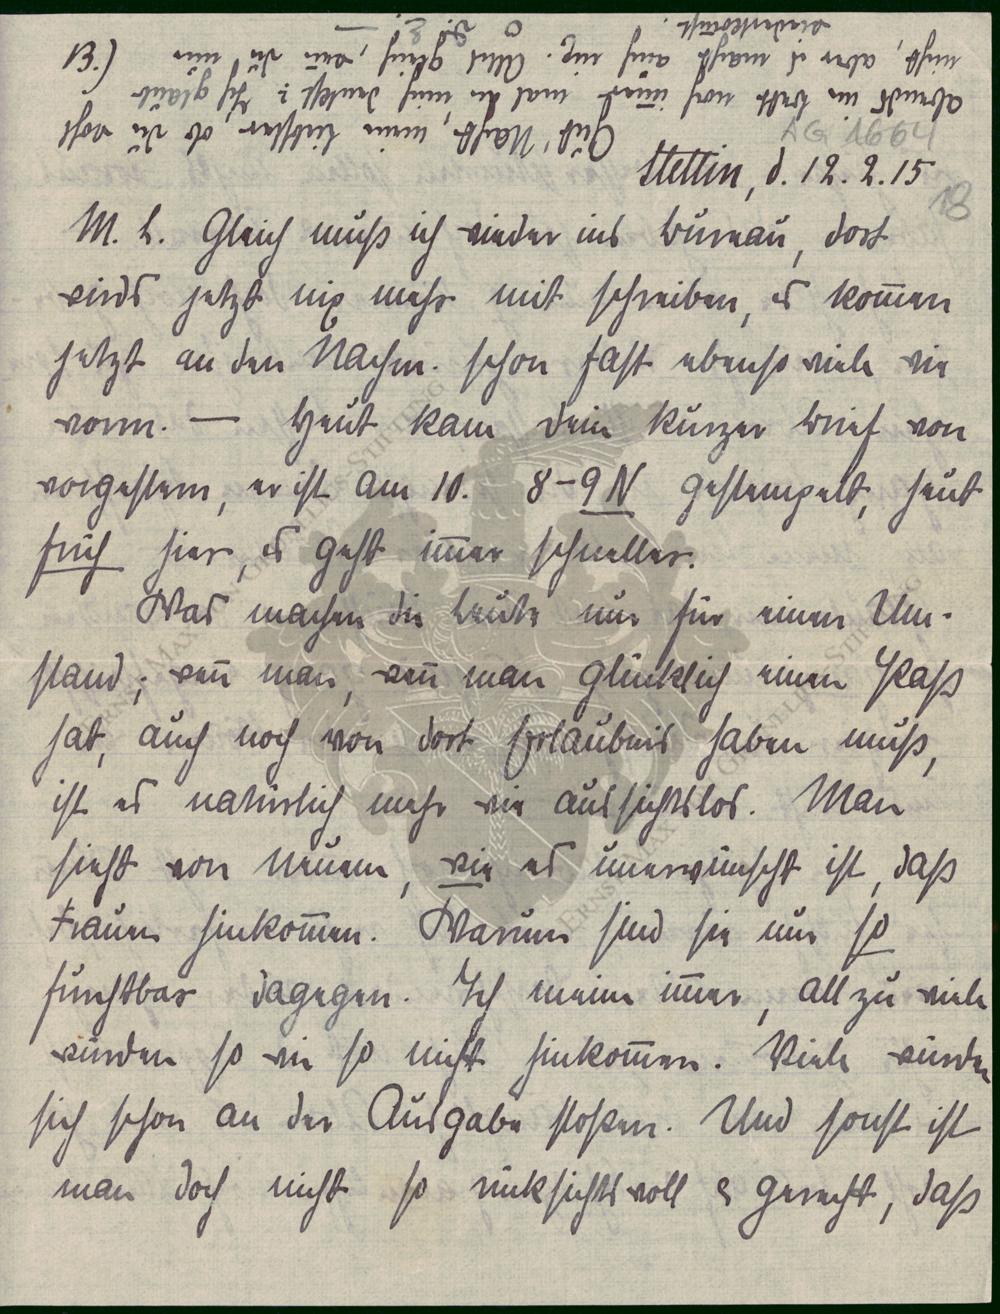 Gut' Nacht, mein Liebster, ob du wohl
abends im Bett noch immer mal an mich denkst? Ich glaub
nicht, aber es macht auch nix. Alles gleich, wenn du nur
wiederkommst.
B.)
AG 1664
18
Stettin, d. 12. 2. 15
M. L. Gleich muß ich wieder ins Bureau, dort
wirds jetzt nix mehr mit schreiben, es kom̅en
jetzt an den Nachm. schon fast ebenso viele wie
vorm. — Heut kam dein kurzer Brief von
vorgestern, er ist am 10. 8-9 N gestempelt, heut
früh hier, es geht im̅er schneller.
Was machen die Leute nur für einen Um-
stand; wen̅ man, wen̅ man glücklich einen Paß
hat, auch noch von dort Erlaubnis haben muß,
ist es natürlich mehr wie aussichtslos. Man
sieht von Neuem, wie es unerwünscht ist, daß
Frauen hinkom̅en. Warum sind sie nur so
furchtbar dagegen. Ich meine im̅er, allzu viele
würden so wie so nicht hinkom̅en. Viele würden
sich schon an der Ausgabe stoßen. Und sonst ist
man doch nicht so rücksichtsvoll & gerecht, daß